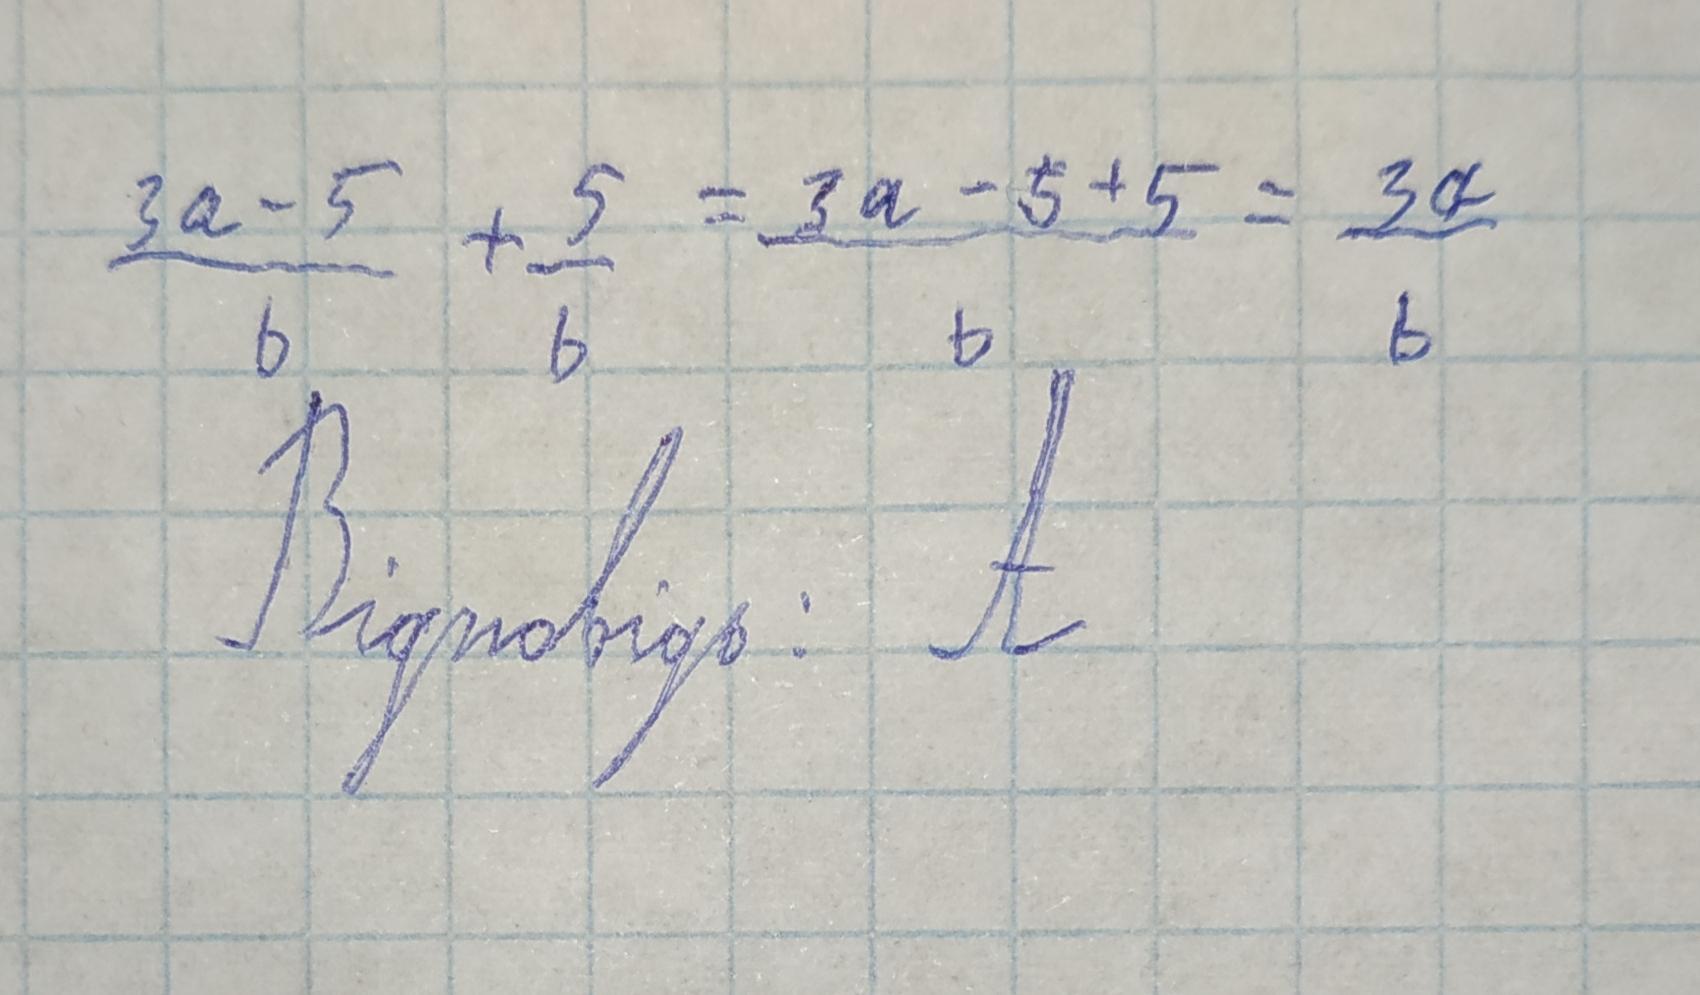 (3a - 5)/b + 5/b = (3a - 5 + 5)/b = 3a/b
Відповідь: А